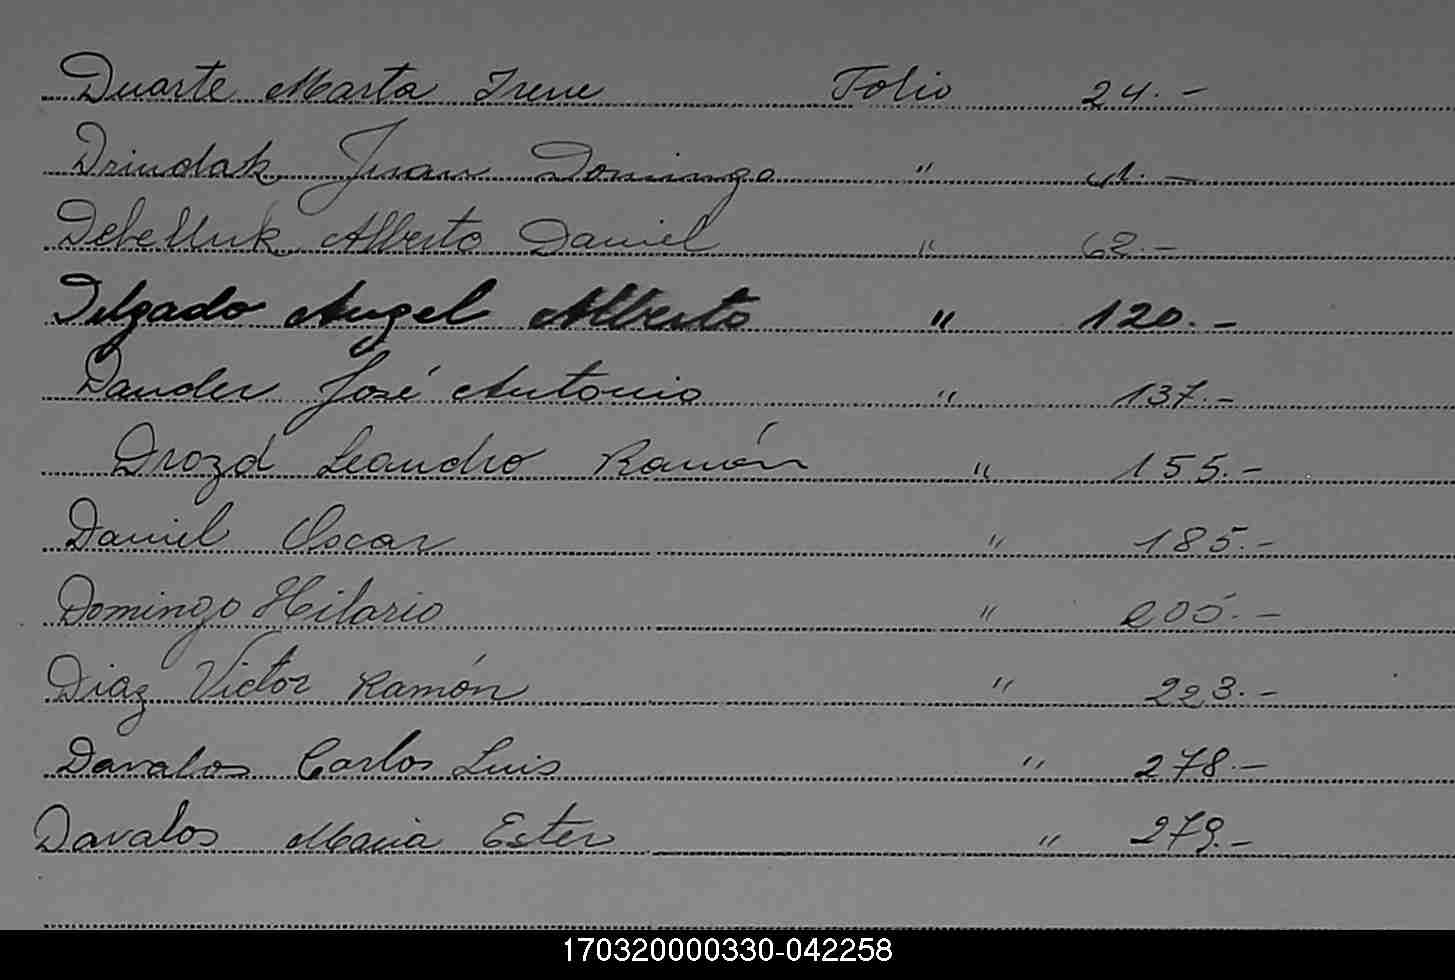 Duarte Marta Irene Folio 24.-
Drindak Juan Domingo " 41.-
Debelluk Alberto Daniel " 62.-
Delgado Angel Alberto " 120.-
Dander José Antonio " 137.-
Drozd Leandro Ramón " 155.-
Daniel Oscar " 185.-
Domingo Hilario " 205.-
Diaz Victor Ramón " 223.-
Davalos Carlos Luis " 278.-
Davalos Maria Ester " 279.-
170320000330-042258